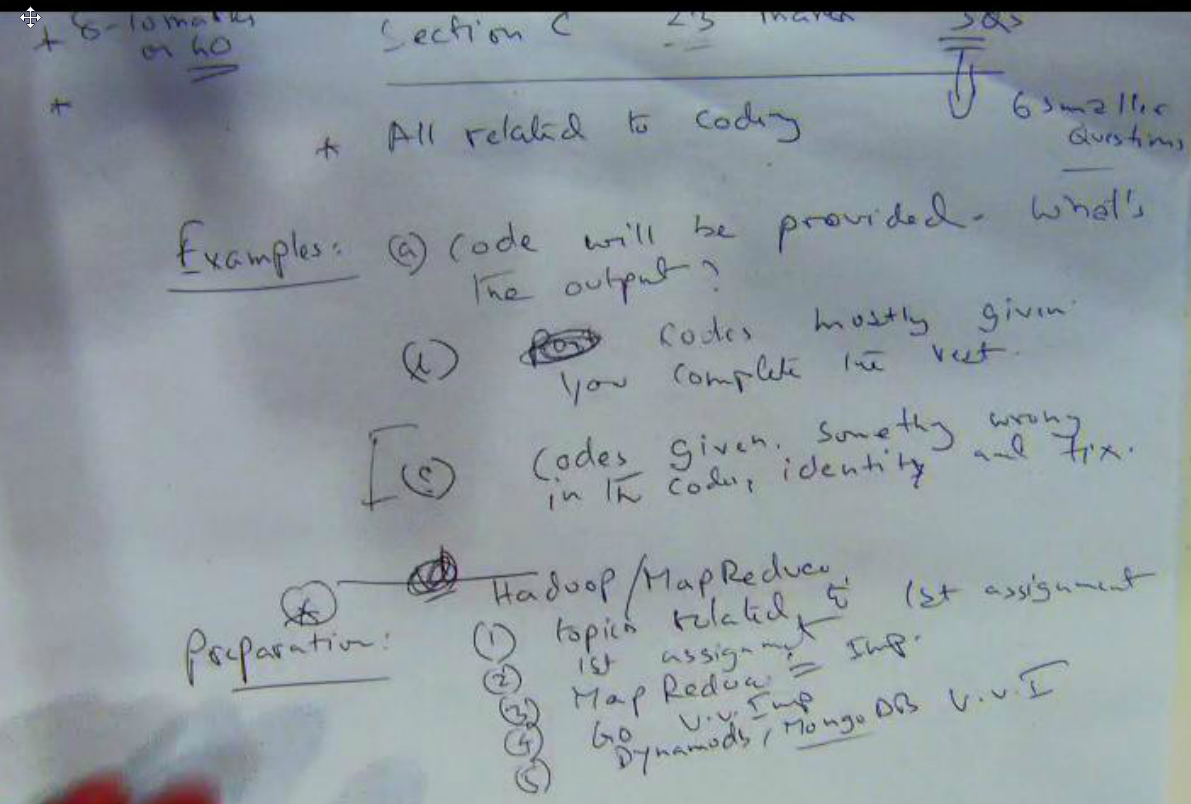 * 8-10 marks
on 40
Section C 23 marks 3Qs
*
6 smaller
Questions
* All related to coding
Examples: (a) Code will be provided. What's
the output?
(b) Codes mostly given
you complete the rest.
[(c) Codes given. Somethg wrong
in the codes, identity and fix.
* Hadoop/MapReduce
Preparation: (1) topics related to 1st assignment
(2) 1st assignmt Imp.
(3) Map Reduce
(4) GO V.V. Imp
(5) Dynamodb, MongoDB V.V.I